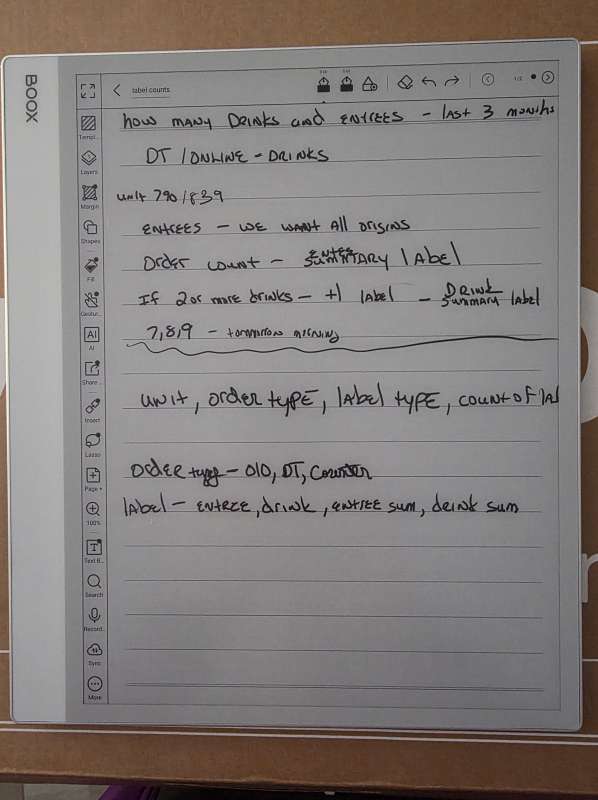 BOOX
label counts
1/2
Templ...
Layers
Margin
Shapes
Fill
Gestur...
AI
AI
Share...
Insert
Lasso
Page +
100%
Text B...
Search
Record...
Sync
More
how many Drinks and ENTREES - last 3 months
DT / ONLINE - DRINKS
unit 790 / 839
ENTREES - WE WANT All ORIGINS
Order count - ENTREE SUMMARY lABEL
If 2 or more drinks - +1 label - DRINK SUMMARY label
7,8,9 - tomorrow morning
unit, order type, label type, count of lal
order type - OLO, DT, Counter
label - ENTREE, drink, ENTREE sum, drink sum